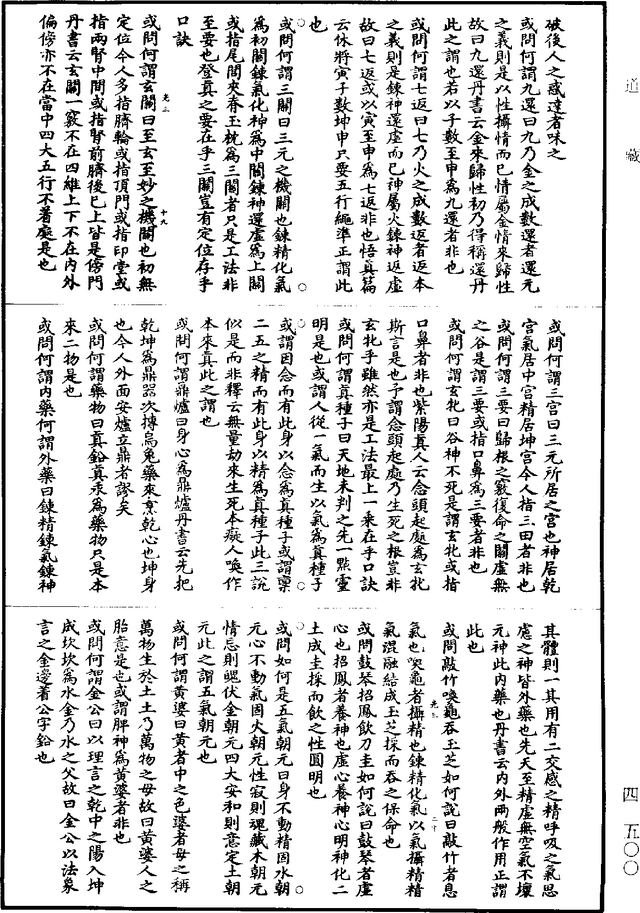 道藏
破後人之惑達者味之
或問何謂九還曰九乃金之成數還者還元
之義則是以性攝情而已情屬金情來歸性
故曰九還丹書云金來歸性初乃得稱還丹
此之謂也若以子數至申為九還者非也
或問何謂七返曰七乃火之成數返者返本
之義則是鍊神還虛而已神屬火鍊神返虛
故曰七返或以寅至申為七返非也悟真篇
云休將寅子數坤申只要五行繩準正謂此
也
或問何謂三關曰三元之機關也鍊精化氣
為初關鍊氣化神為中關鍊神還虛為上關
或指尾閭夾脊玉枕為三關者只是工法非
至要也登真之要在乎三關豈有定位存乎
口訣
或問何謂玄關曰至玄至妙之機關也初無
定位今人多指臍輪或指頂門或指印堂或
指兩腎中間或指腎前臍後已上皆是傍門
丹書云玄關一竅不在四維上下不在內外
偏傍亦不在當中四大五行不着處是也
或問何謂三宫曰三元所居之宫也神居乾
宫氣居中宫精居坤宫今人指三田者非也
或問何謂三要曰歸根之竅復命之關虛無
之谷是謂三要或指口鼻為三要者非也
或問何謂玄牝曰谷神不死是謂玄牝或指
口鼻者非也紫陽真人云念頭起處為玄牝
斯言是也予謂念頭起處乃生死之根豈非
玄牝乎雖然亦是工法最上一乘在乎口訣
或問何謂真種子曰天地未判之先一點靈
明是也或謂人從一氣而生以氣為真種子
或謂因念而有此身以念為真種子或謂稟
二五之精而有此身以精為真種子此三說
似是而非釋云無量劫來生死本癡人喚作
本來真此之謂也
或問何謂鼎爐曰身心為鼎爐丹書云先把
乾坤為鼎器次摶烏兔藥來烹乾心也坤身
也今人外面安爐立鼎者謬矣
或問何謂藥物曰真鉛真汞為藥物只是本
來二物是也
或問何謂內藥何謂外藥曰鍊精鍊氣鍊神
其體則一其用有二交感之精呼吸之氣思
慮之神皆外藥也先天至精虛無空氣不壞
元神此內藥也丹書云內外兩般作用正謂
此也
或問敲竹喚龜吞玉芝如何說曰敲竹者息
氣也喚龜者攝精也鍊精化氣以氣攝精精
氣混融結成玉芝採而吞之保命也
或問鼓琴招鳳飲刀圭如何說曰鼓琴者虛
心也招鳳者養神也虛心養神心明神化二
土成圭採而飲之性圓明也
或問如何是五氣朝元曰身不動精固水朝
元心不動氣固火朝元性寂則魂藏木朝元
情忘則魄伏金朝元四大安和則意定土朝
元此之謂五氣朝元也
或問何謂黃婆曰黃者中之色婆者母之稱
萬物生於土土乃萬物之母故曰黃婆人之
胎意是也或謂脾神為黃婆者非也
或問何謂金公曰以理言之乾中之陽入坤
成坎坎為水金乃水之父故曰金公以法象
言之金邊着公字鉛也
四 五〇〇